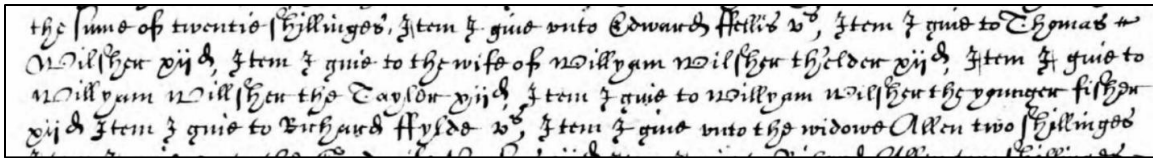 the sume of twentie shillinges, Item I give unto Edward ffellis vs, Item I give to Thomas
Wilsher xijd, Item I give to the wife of Willyam Wilsher thelder xijd, Item I give to
Willyam Willsher the Tayler xijd, Item I give to Willyam Wilsher the younger fisher
xijd Item I give to Richard ffylde vs, Item I give unto the widowe Allen two shillinges